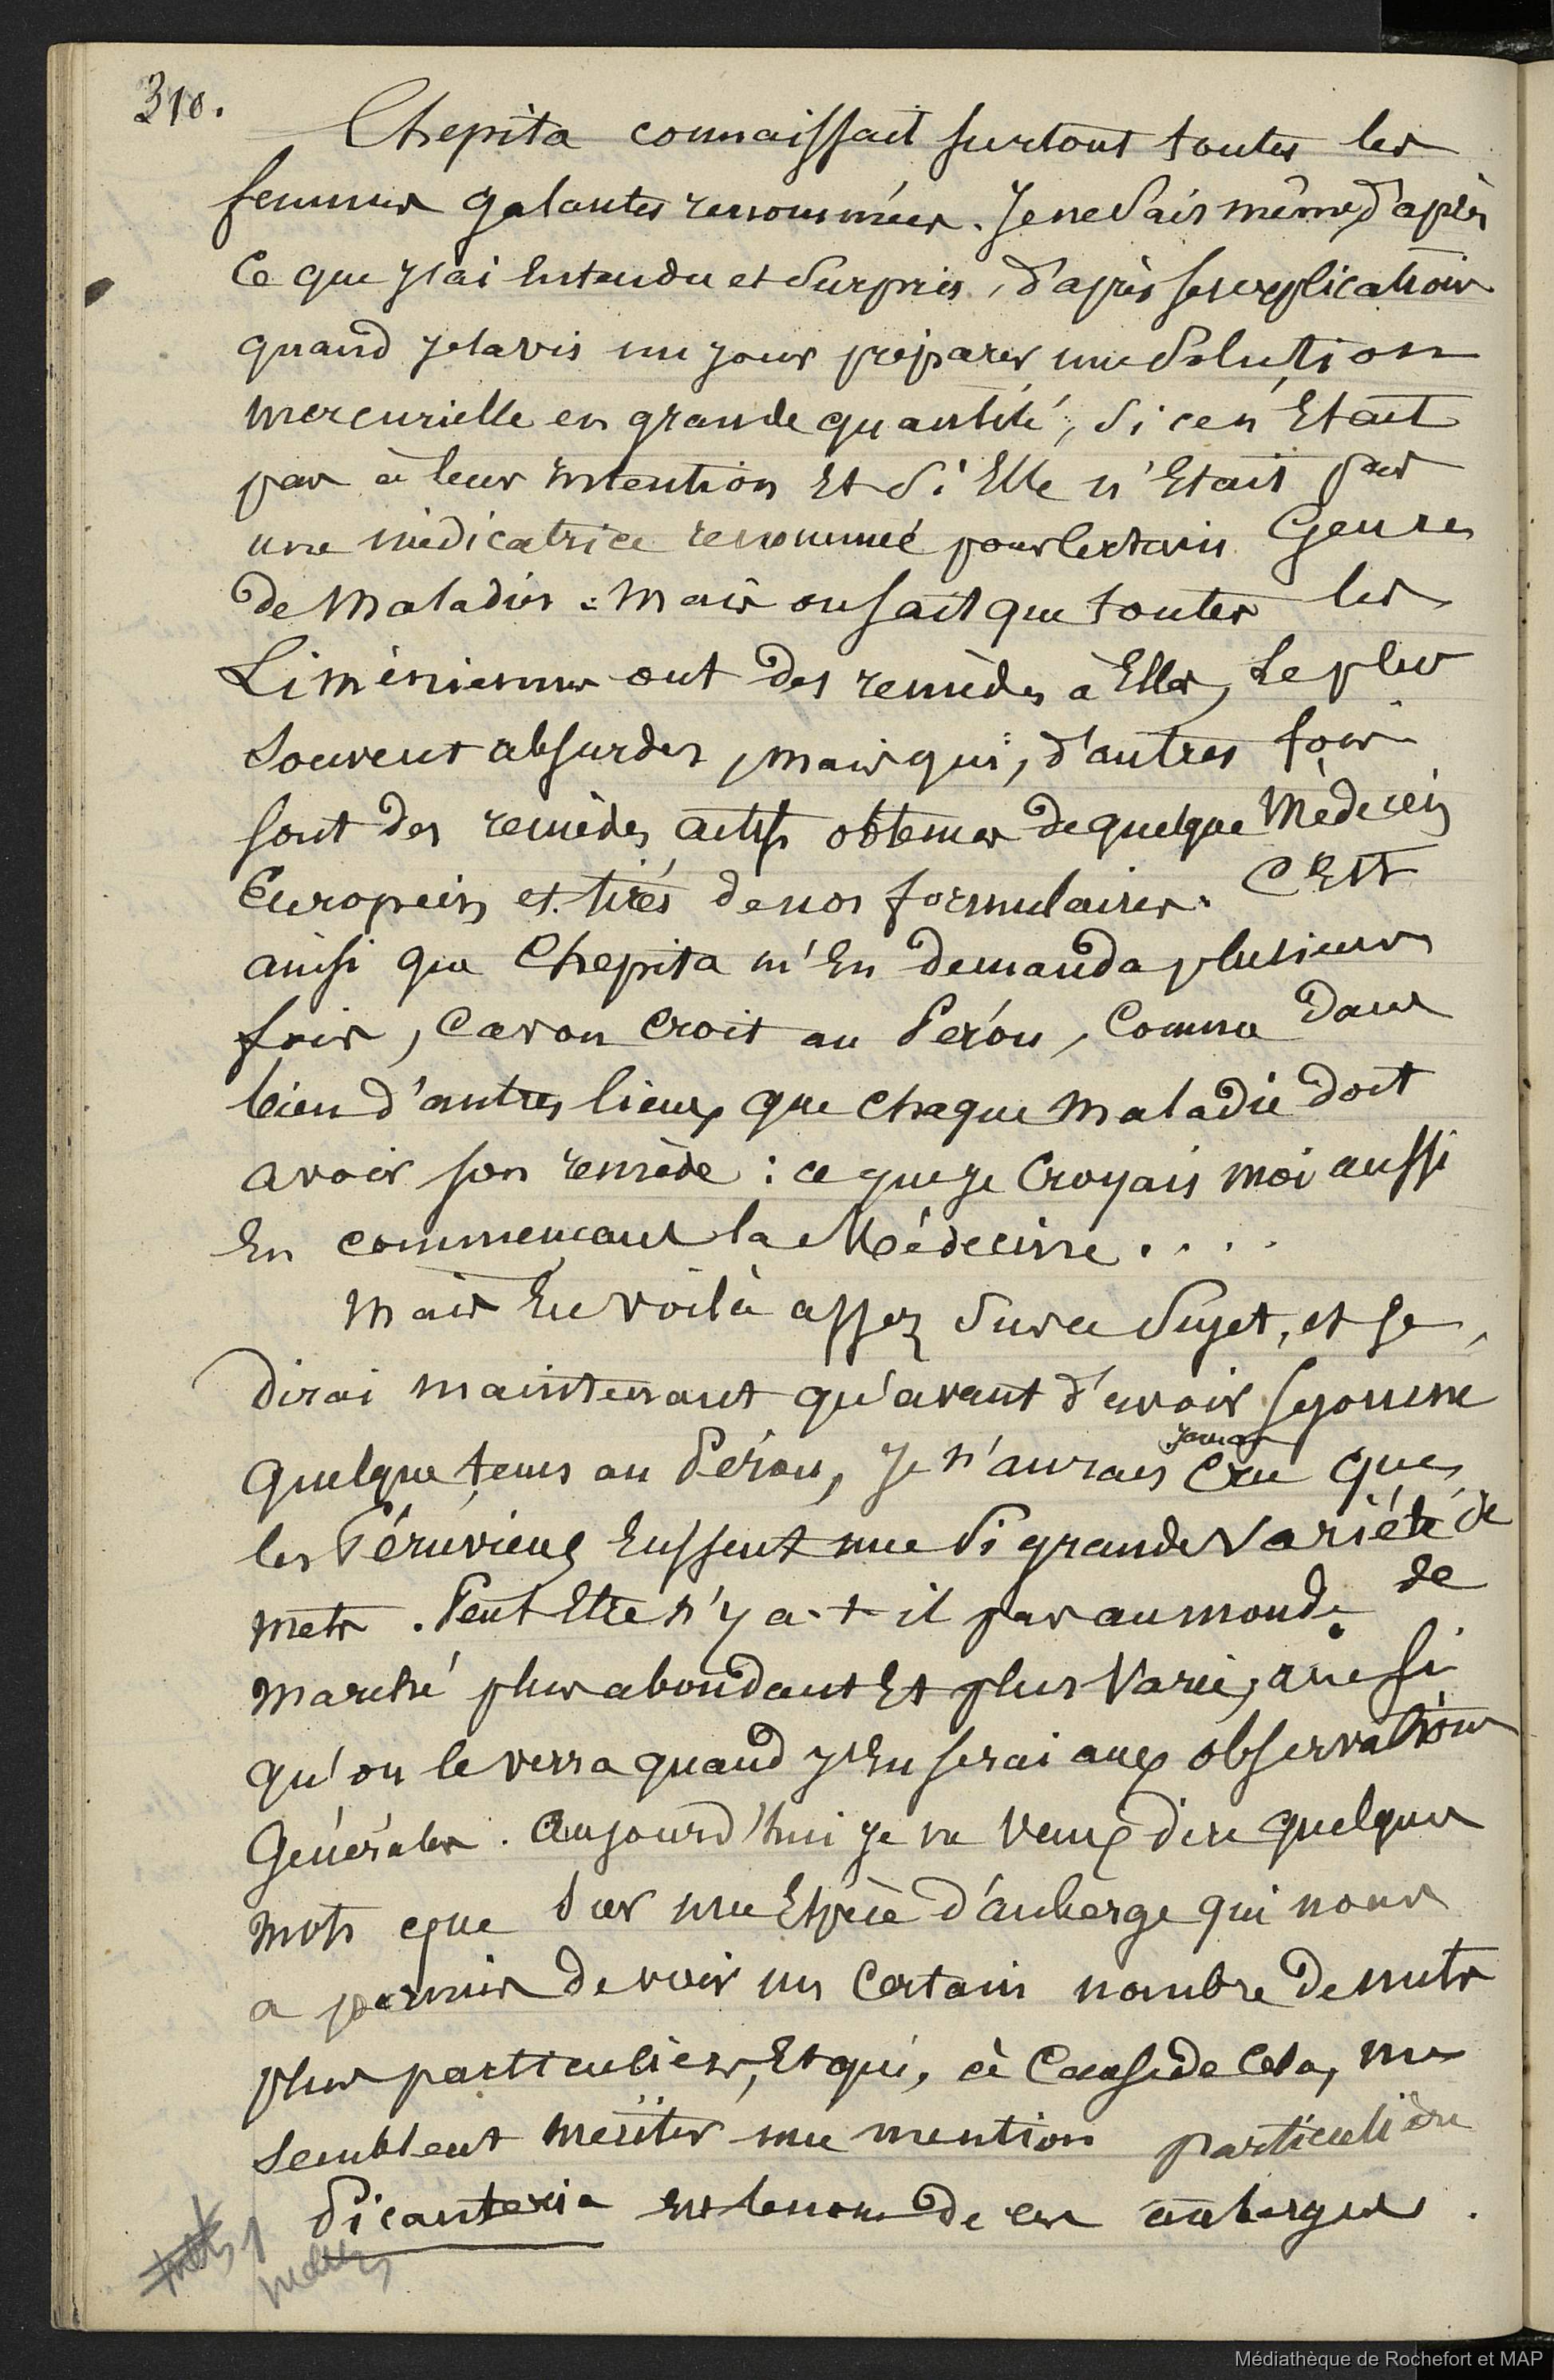 310.
Chepita connaissait surtout toutes les
femmes galantes renommées. Je ne sais même, d'après
ce que j'ai entendu et surpris, d'après ses explications
quand je la vis un jour préparer une solution
mercurielle en grande quantité, si ce n'était
pas à leur intention et si elle n'était pas
une médicatrice renommée pour certains genres
de maladies. Mais on sait que toutes les
Liméniennes ont des remèdes à elles, le plus
souvent absurdes, mais qui, d'autres fois
sont des remèdes actifs obtenus de quelque Médecin
Européen et tirés de nos formulaires. C'est
ainsi que Chepita m'en demanda plusieurs
fois, car on croit au Pérou, comme dans
bien d'autres lieux que chaque maladie doit
avoir son remède : ce que je croyais moi aussi
en commençant la Médecine....
Mais en voilà assez sur ce sujet, et je
dirai maintenant qu'avant d'avoir sejourné
quelque tems au Pérou, je n'aurais jamais cru que
les Péruviens eussent une si grande variété de
mets. Peut être n'y a-t-il pas au monde de
marché plus abondant et plus varié, ainsi
qu'on le verra quand j'en serai aux observations
Générales. Aujourd'hui je ne veux dire quelques
mots que sur une espèce d'auberge qui nous
a permis de voir un certain nombre de mets
plus particuliers, et qui, à cause de cela, me
semblent mériter une mention particulière
Picanteria est le nom de ces auberges.